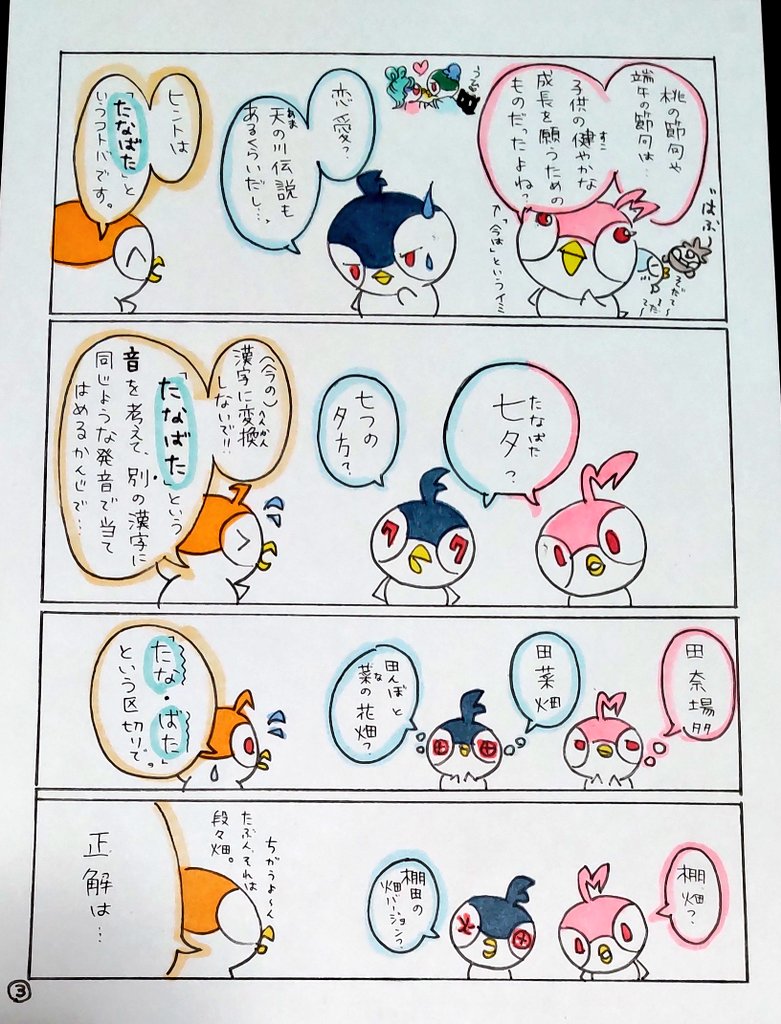 桃の節句や
端午の節句は…
子供の健やかな
すこ
成長を願うための
ものだったよね？
恋愛？
天の川伝説も
あま
あるくらいだし…、
ヒントは
「たなばた」と
いうコトバです。
たなばた
七夕？
七つの
夕方？
(今の)
漢字に変換
へんかん
しないで!!
「たなばた」という
音を考えて、別の漢字に
同じような発音で当て
はめるかんじで…
田奈場多
田菜畑
田んぼと
菜の花畑？
な
「たな・ばた」
という区切りで。
棚畑？
棚田の
畑バージョン？
ちがうよ〜く
たぶん、それは
段々畑。
正解は…
3